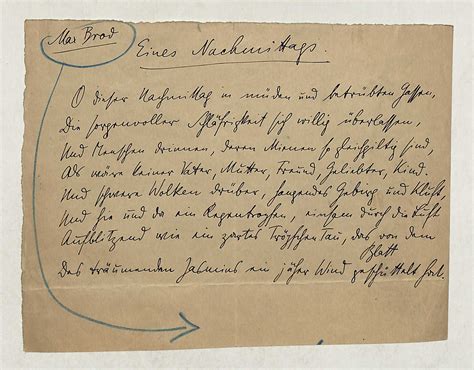 Max Brod
Eines Nachmittags.
O dieser Nachmittag in müden und betrübten Gassen,
Die sorgenvoller Schläfrigkeit sich willig überlassen,
Und Menschen drinnen, deren Mienen so gleichgiltig sind,
Als wäre keiner Vater, Mutter, Freund, Geliebter, Kind.
Und schwere Wolken drüber, hängendes Gebirg und Klüft,
Und hie und da ein Regentropfen, einsam durch die Luft
Aufblitzend wie ein zartes Tröpfchen Tau, das von dem
Blatt
Des träumenden Jasmins ein jäher Wind geschüttelt hat.